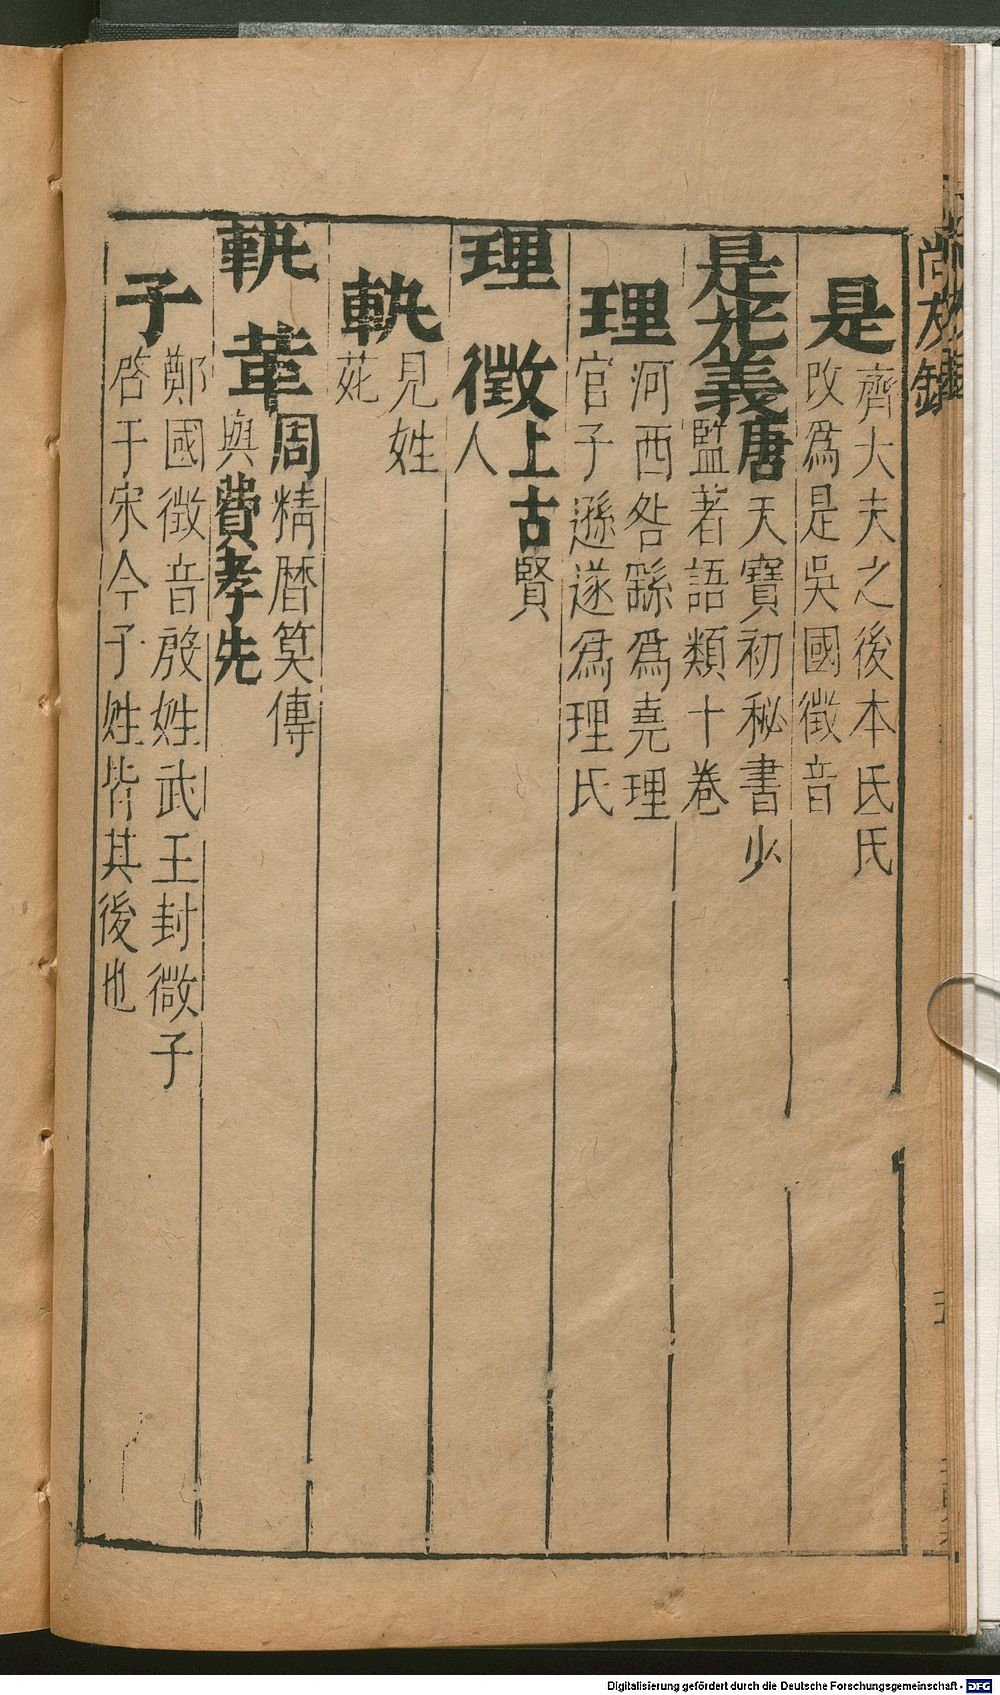 尚友錄
是 齊大夫之後本氏氏
改爲是吳國徵音
是光義唐天寶初秘書少
監著語類十卷
理 河西咎繇爲堯理
官子遜遂爲理氏
理徵上古賢
人
軌 見姓
苑
軌革周精曆筭傳
與費孝先
子 鄭國徵音殷姓武王封微子
啓于宋今子姓皆其後也
Digitalisierung gefördert durch die Deutsche Forschungsgemeinschaft - DFG